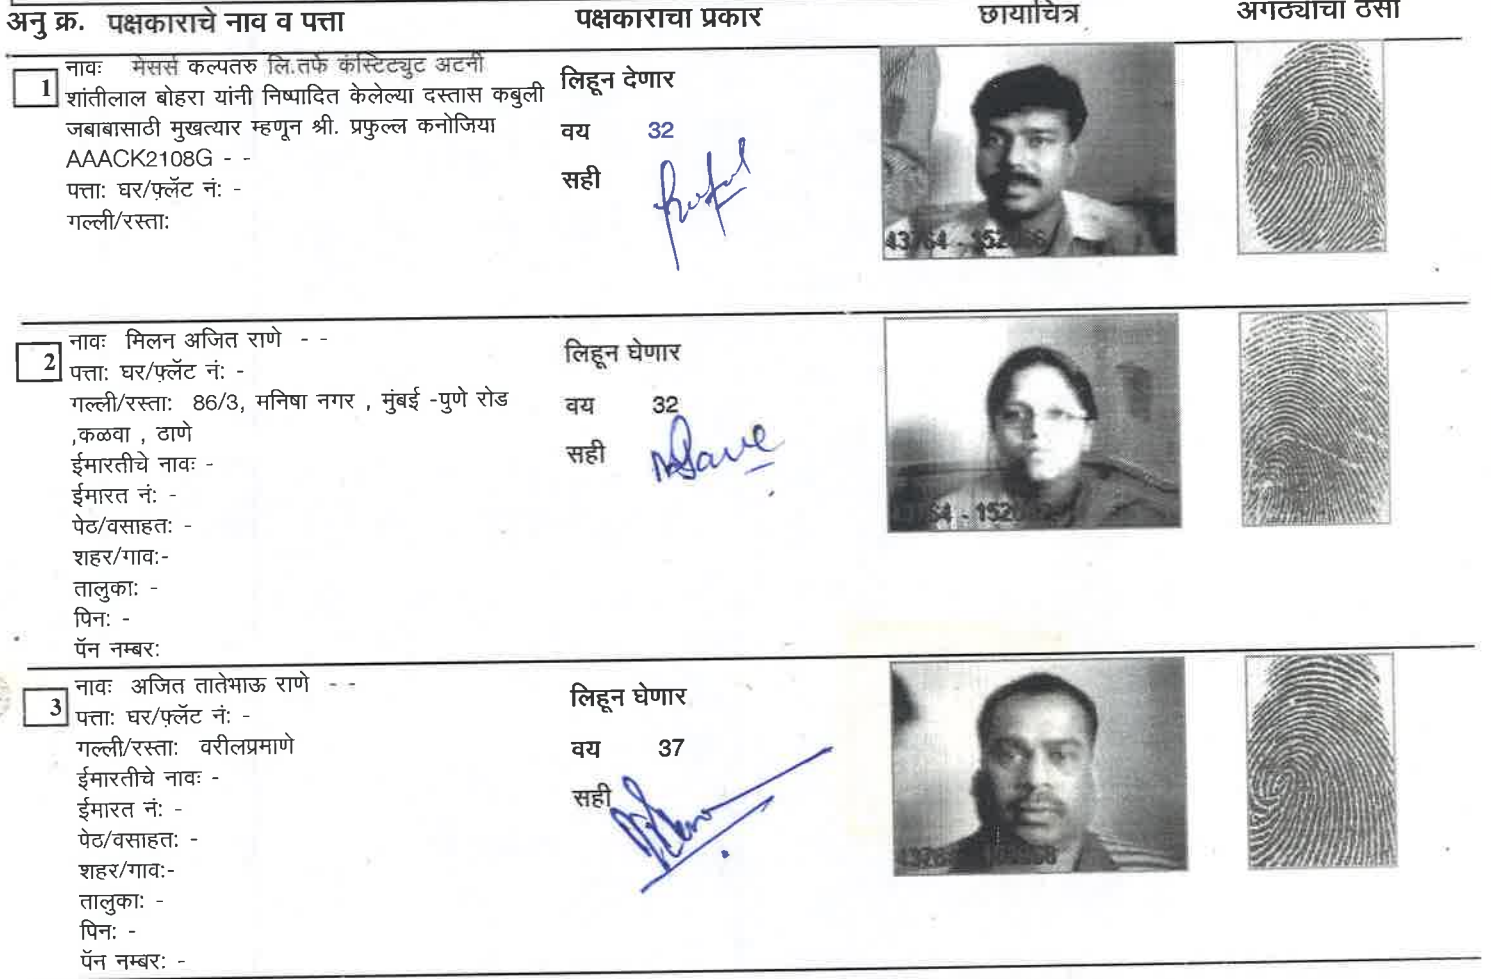 अनु क्र. पक्षकाराचे नाव व पत्ता पक्षकाराचा प्रकार छायाचित्र अंगठ्याचा ठसा
1 नावः मेसर्स कल्पतरु लि.तर्फे कंस्टिट्युट अटनी
शांतीलाल बोहरा यांनी निष्पादित केलेल्या दस्तास कबुली
जबाबासाठी मुखत्यार म्हणून श्री. प्रफुल्ल कनोजिया
AAACK2108G - -
पत्ता: घर/फ़्लॅट नं: -
गल्ली/रस्ता:
लिहून देणार
वय 32
सही
2 नावः मिलन अजित राणे - -
पत्ता: घर/फ़्लॅट नं: -
गल्ली/रस्ता: 86/3, मनिषा नगर , मुंबई -पुणे रोड
,कळवा , ठाणे
ईमारतीचे नावः -
ईमारत नं: -
पेठ/वसाहत: -
शहर/गाव:-
तालुका: -
पिन: -
पॅन नम्बर:
लिहून घेणार
वय 32
सही
3 नावः अजित तातेभाऊ राणे - -
पत्ता: घर/फ़्लॅट नं: -
गल्ली/रस्ता: वरीलप्रमाणे
ईमारतीचे नावः -
ईमारत नं: -
पेठ/वसाहत: -
शहर/गाव:-
तालुका: -
पिन: -
पॅन नम्बर: -
लिहून घेणार
वय 37
सही